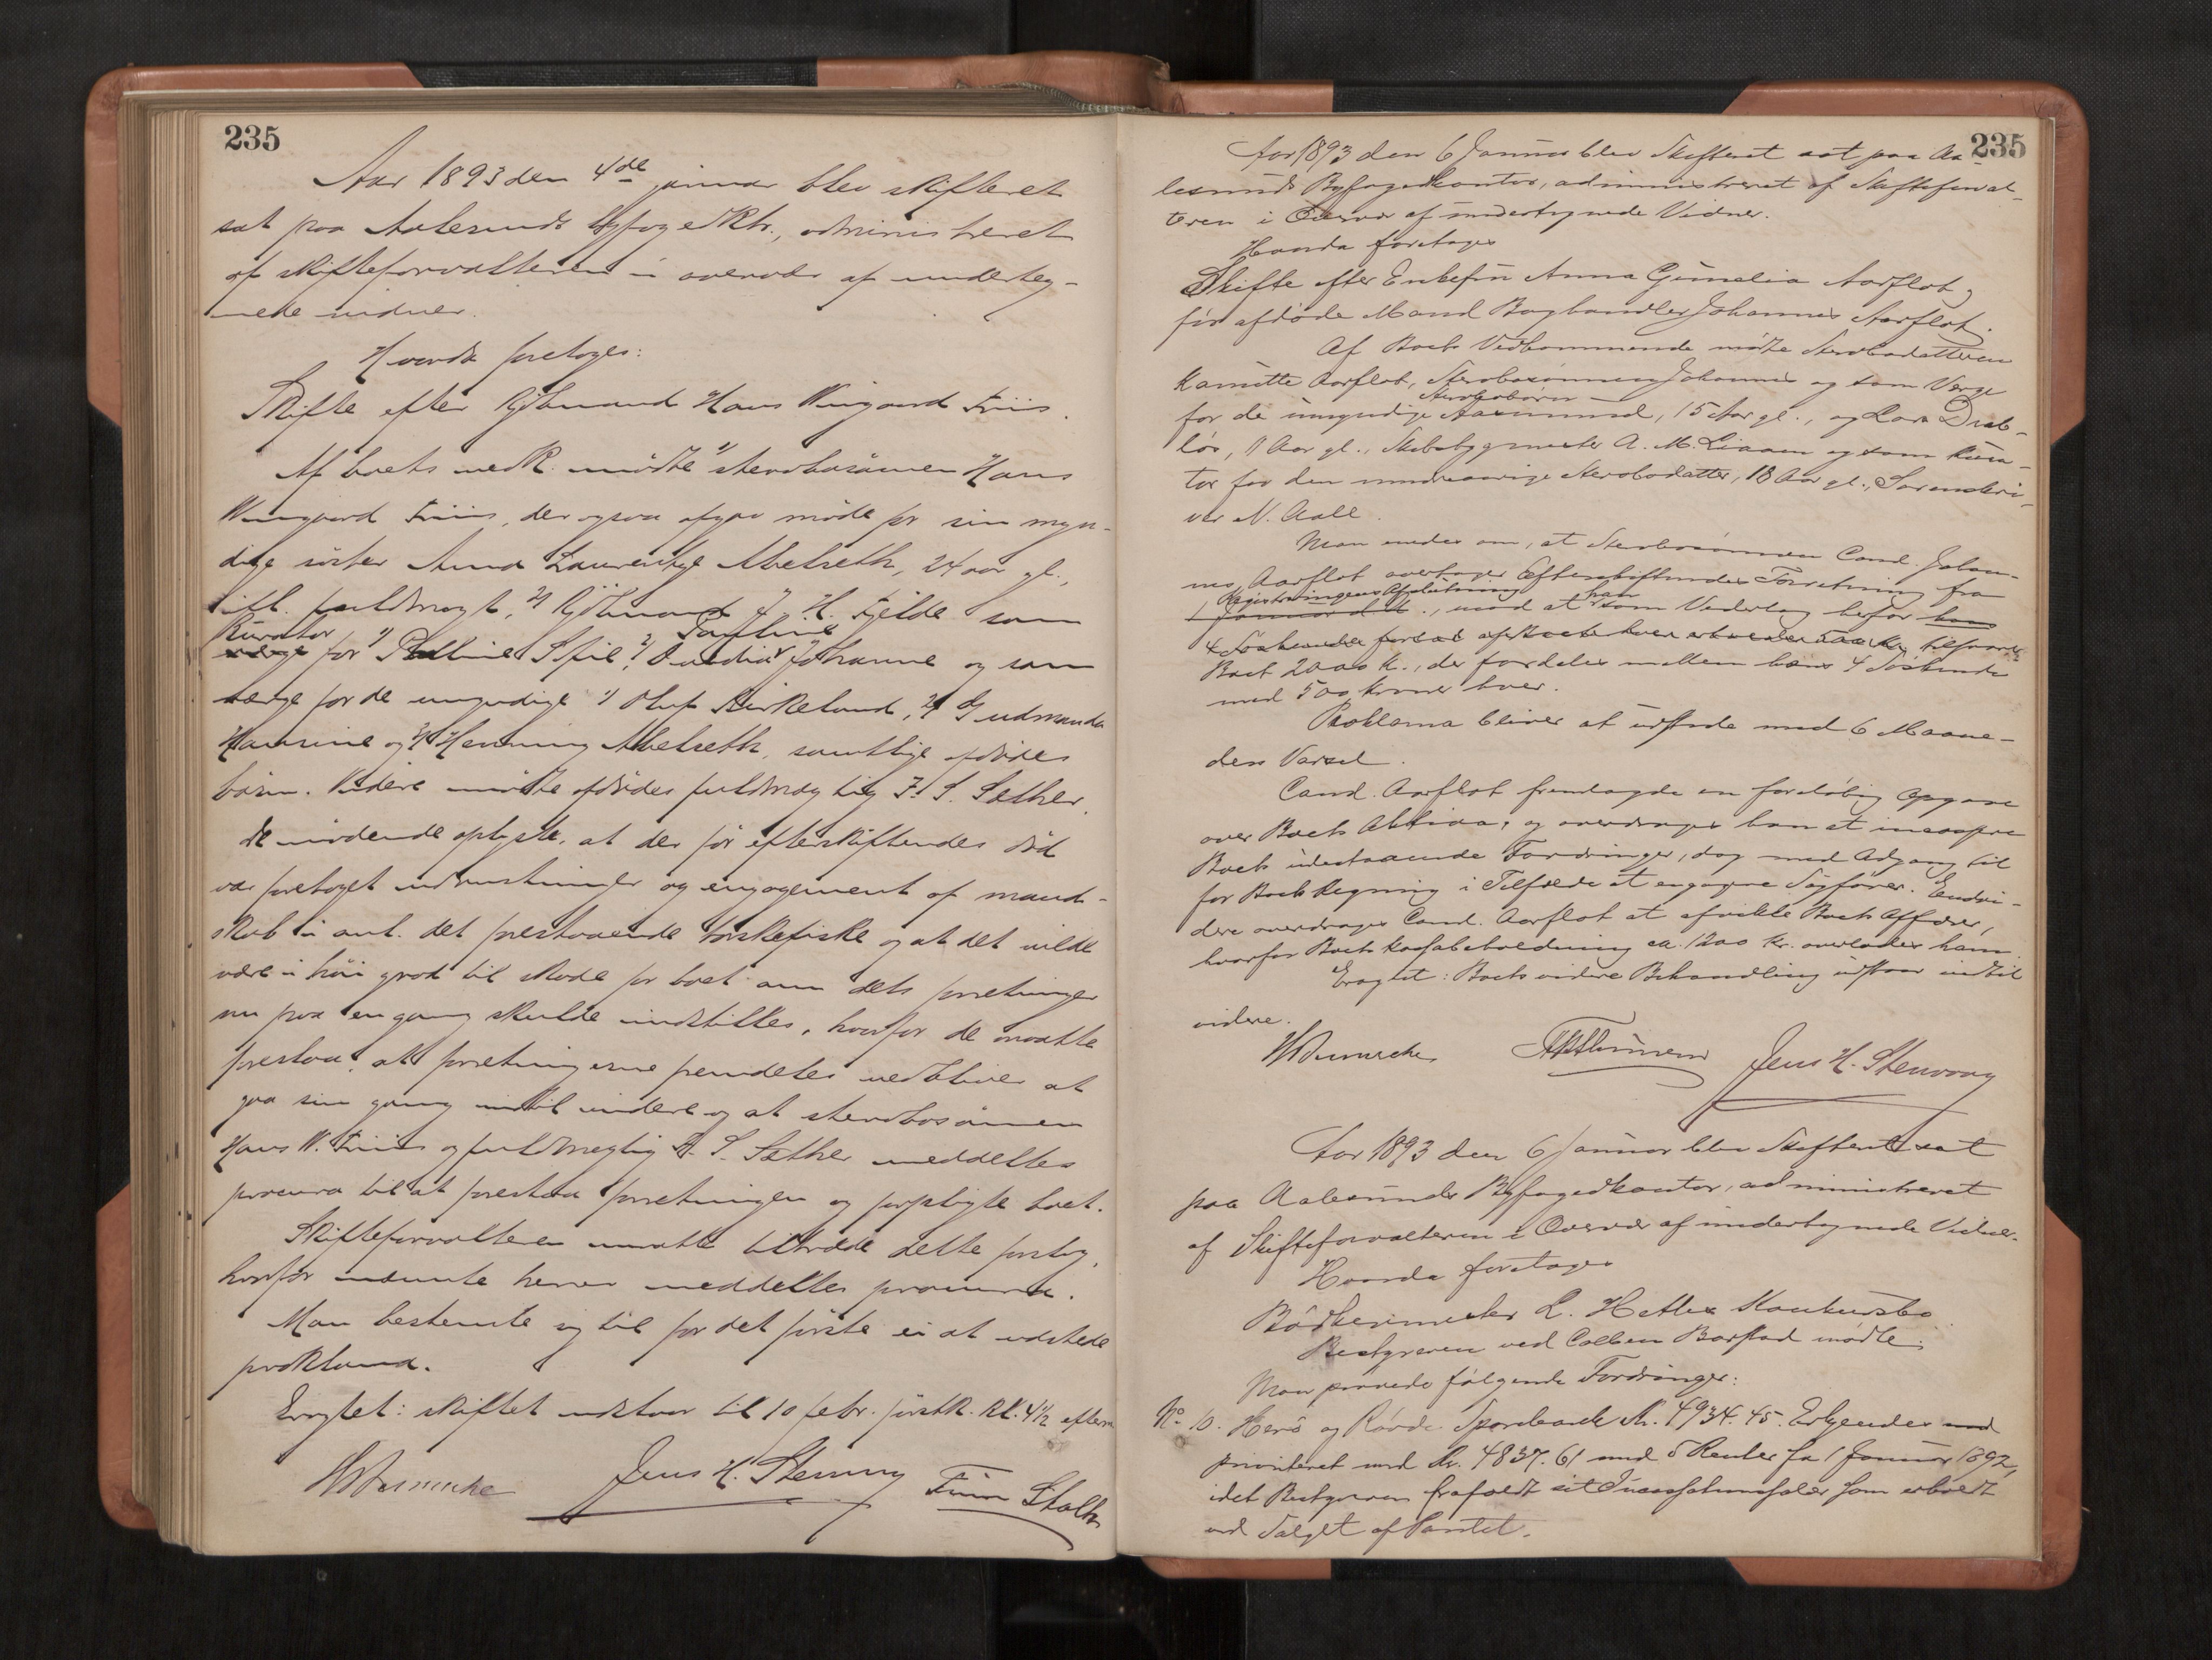 235
Aar 1893 den 4de januar blev skifteret
sat paa Aalesunds byfogedktr., administreret
af skifteforvalteren i overvær af underteg-
nede vidner.
Hvorda foretoges:
Skifte efter Kjöbmand Hans Wingaard Friis.
Af boets vedk. mödte 1) sterbosönnen Hans
Wingaard Friis, der ogsaa afgav möde for sin myn-
dige söster Anna Laurentze Abelseth, 24 aar gl.,
ifl. fuldmagt, 2) Kjöbmand J. H. Fjelde som
Kurator Pauline
værge for 1) Sfie, 2) Johanne og som
værge for de umyndige 1) Oluf Birkeland, 2) Gudmunda
Hansine og 3) Henning Abelseth, samtlige afdödes
börn. Videre mödte afdödes fuldmægtig F. S. Sæther.
De mödende oplyste, at der för efterskiftendes död
var foretaget udrustninger og engagement af mand-
skab i anl. det forestaaende torskefiske og at det vilde
være i höi grad til skade for boet om dets forretninger
nu paa en gang skulde indstilles, hvorfor de maatte
foreslaa, at forretningerne fremdeles vedbliver at
gaa sin gang indtil videre og at sterbosönnen
Hans W. Friis og fuldmægtig F. S. Sæther meddeltes
procura til at forestaa forretningen og forpligte boet.
Skifteforvalteren maatte tiltræde dette forslag,
hvorfor nævnte herrer meddeltes procura.
Man bestemte sig til for det förste ei at udstede
proklama.
Eragtet: skiftet udstaar til 10 febr. förstk. kl. 4½ efterm.
Jens H. Stenvaag
235
Aar 1893 den 6 Januar blev Skifteret sat paa Aa-
lesunds Byfogedkontor, administreret af Skifteforval-
teren i Overvær af undertegnede Vidner.
Hvorda foretoges
Skifte efter Enkefru Anna Aarflot og
för afdöde Mand Boghandler Johannes Aarflot.
Af Boets Vedkommende mödte Sterbodatteren
Aarflot, Sterbosönnen Johannes og som Verge
Sterbobörn
for de umyndige Aasmund, 15 Aar gl., og Lars
11 Aar gl., Skibsbygmester A. M. Liaaen og som Kura-
tor for den mindreaarige Sterbodatter, 18 Aar gl., Sorenskri-
ver N. Aall.
Man enedes om, at Sterbosönnen Cand. Johan-
nes Aarflot overtager Efterskiftendes Forretning fra
Registreringens Afslutning han
1 Januar d. A., mod at som Vederlag herfor
4 Söskende tilsvarer
Boet 2000 K., der fordeles mellem hans 4 Söskende
med 500 Kroner hver.
Proklama bliver at udstede med 6 Maane-
ders Varsel.
Cand. Aarflot fremlagde en forelöbig Opgave
over Boets Aktiva, og overdroges ham at incassere
Boets udestaaende Fordringer, dog med Adgang til
for Boets Regning i Tilfælde at engagere Sagförer. Endvi-
dere overdroges Cand. Aarflot at afvikle Boets Affærer,
hvorfor Boets Kassabeholdning ca. 1200 kr. overlodes ham.
Eragtet: Boets videre Behandling udstaar indtil
videre.
Jens H. Stenvaag
Aar 1893 den 6 Januar blev Skifteret sat
paa Aalesunds Byfogedkontor, administreret
af Skifteforvalteren i Overvær af undertegnede Vidner.
Hvorda foretoges
Bödkermester L. Konkursbo.
Bestyreren ved Barstad mödte.
Man prövede fölgende Fordringer:
No. 10. Herö og Rövde Sparebank Kr. 4934.45. Erkjendes
prioriteret med Kr. 4837.61 med 5 Renter fra 1 Januar 1892,
idet Bestyreren frafaldt sit som erholdt
ved Salget af Pantet.